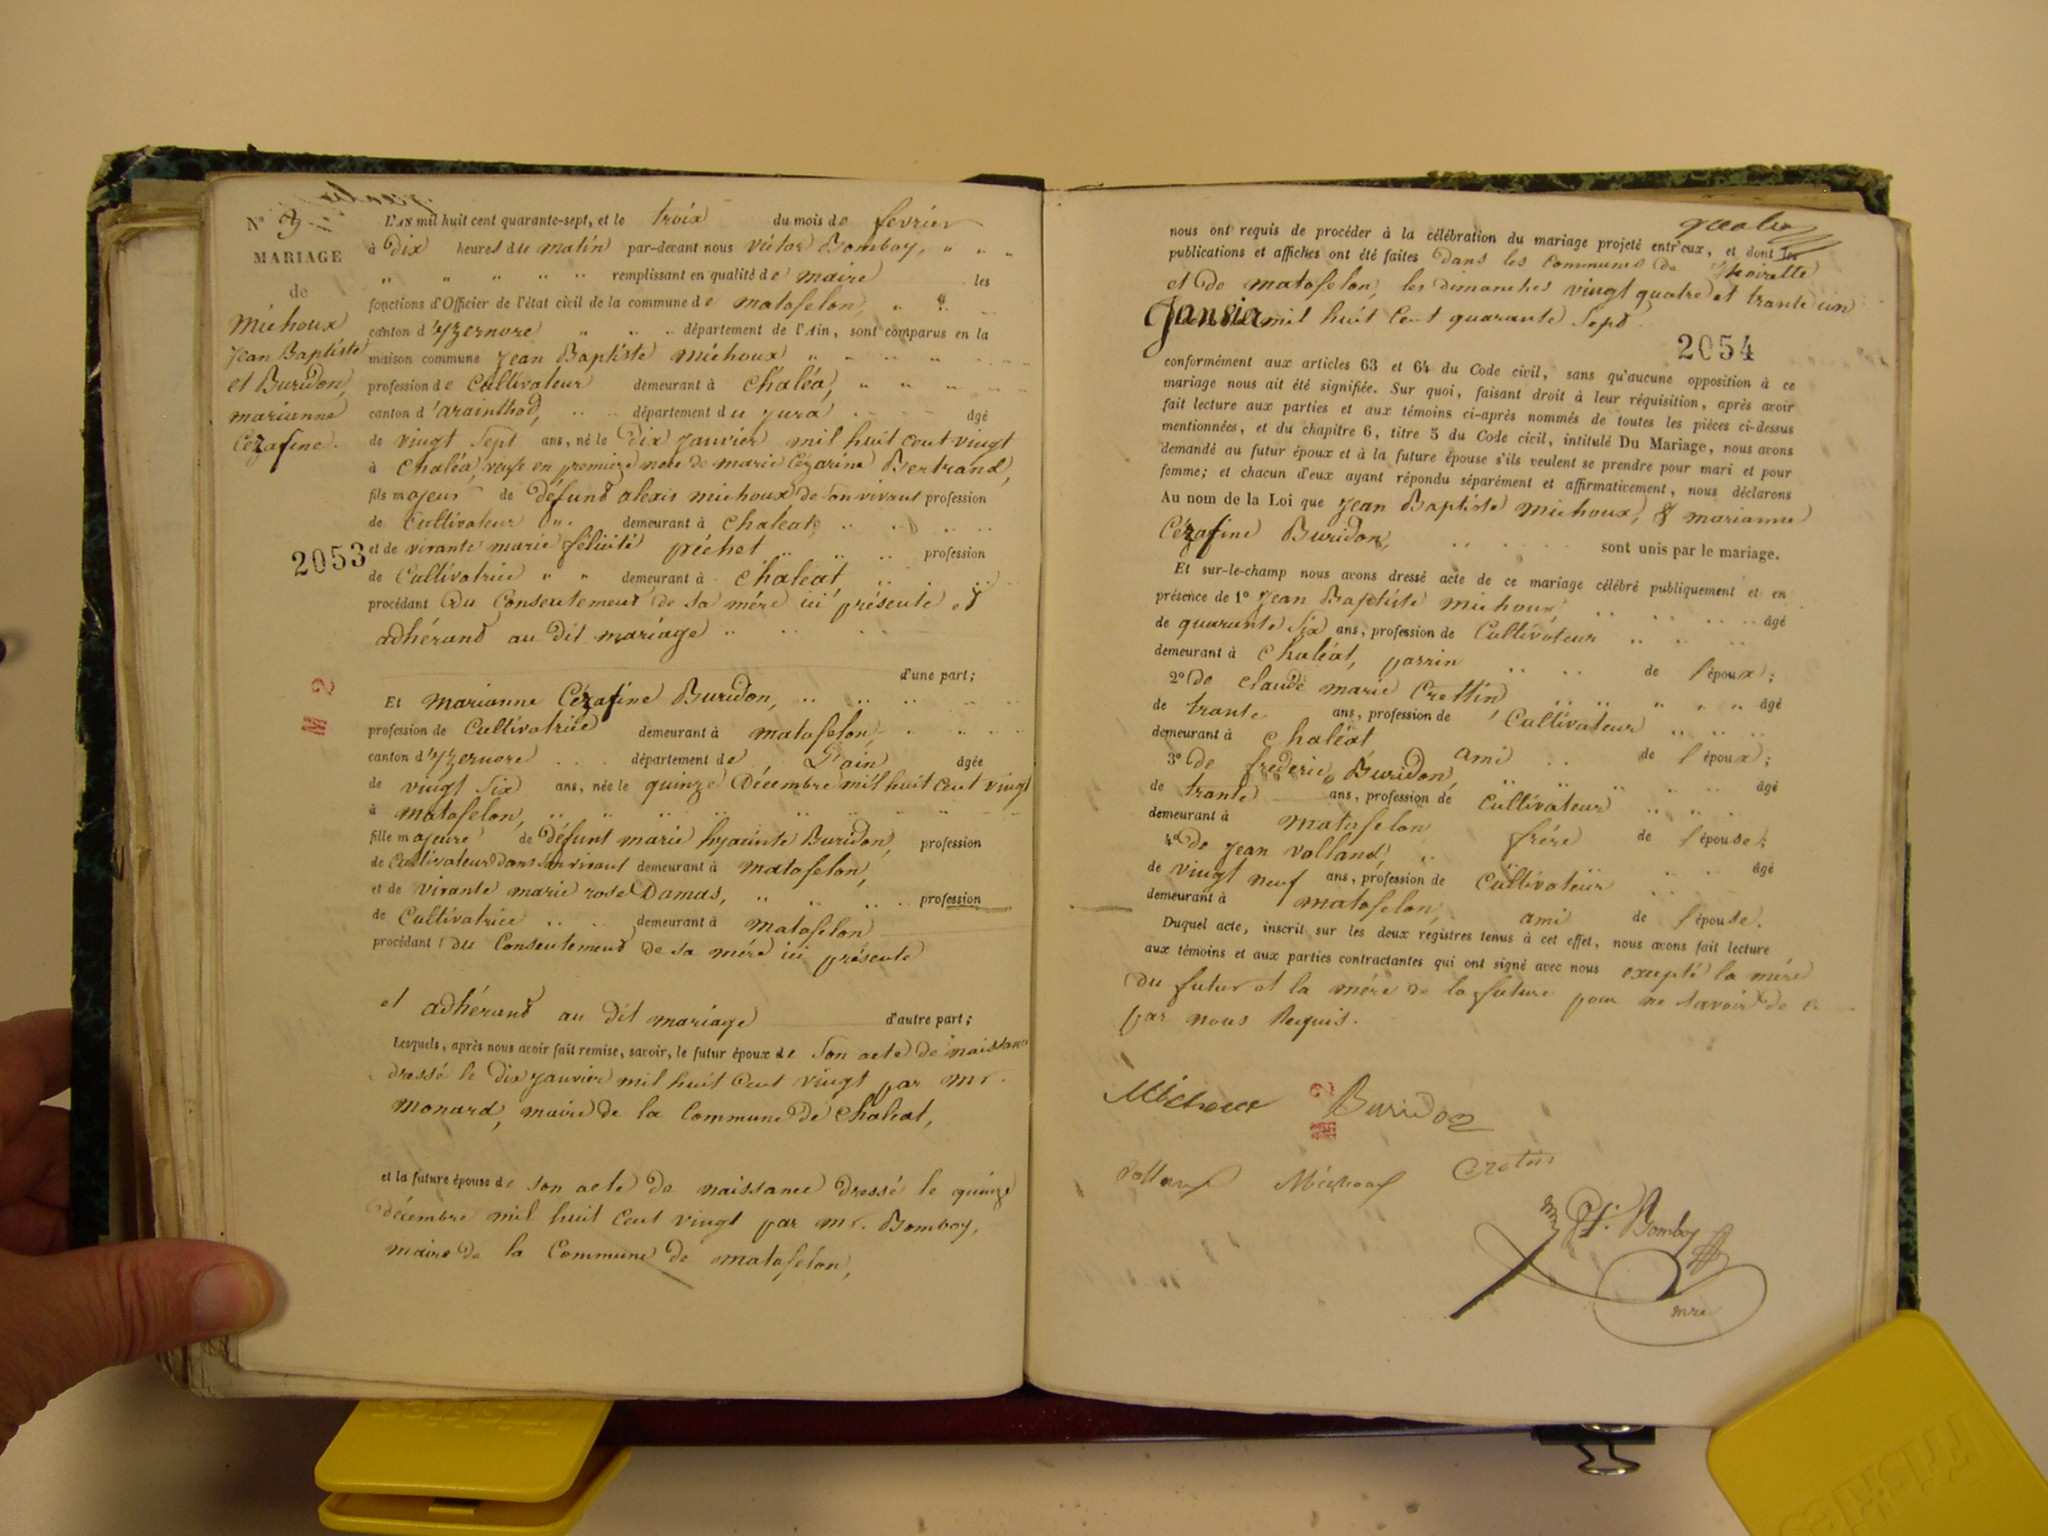 N° 3
MARIAGE
de
Michoux
Jean Baptiste
et Buridon,
marianne
Cézafine.
2053
L'AN mil huit cent quarante-sept, et le troix du mois de fevrier
à Dix heures du matin par-devant nous victor Bomboy, " "
" " " " " remplissant en qualité de maire les
fonctions d'Officier de l'état civil de la commune de matafelon, "
canton d'yzernore " " " département de l'Ain, sont comparus en la
maison commune Jean Baptiste Michoux " " " "
profession de Cultivateur demeurant à Chaléa, " " "
canton d'arainthod, département du jura âgé
de vingt Sept ans, né le Dix janvier mil huit cent vingt
à Chaléa, veuf en première noce de marie Cézarine Bertrand,
fils majeur de défund alexis michoux de Son vivant profession
de Cultivateur demeurant à Chaléat,
et de vivante marie félicité péchet profession
de Cultivatrice " " demeurant à Chaléat
procédant Du Consentement de sa mére ici présente et
adhérand au dit mariage
d'une part;
Et Marianne Cézafine Buridon,
profession de Cultivatrice demeurant à matafelon,
canton d'yzernore département de L'ain âgée
de vingt Six ans, née le quinze Décembre mil huit cent vingt
à matafelon,
fille majeure de Défunt marie hyacinte Buridon, profession
de Cultivateur dans son vivant demeurant à matafelon,
et de vivante marie rose Damas, profession
de Cultivatrice demeurant à matafelon
procédant du Consentement de sa mére ici présente
et adhérand au dit mariage d'autre part;
Lesquels, après nous avoir fait remise, savoir, le futur époux de Son acte de naissance
dressé le dix janvier mil huit Cent vingt par mr.
Monard, maire de la Commune de Chaléat,
et la future épouse de son acte de naissance dressé le quinze
décembre mil huit Cent vingt par mr. Bomboy,
maire de la Commune de matafelon,
nous ont requis de procéder à la célébration du mariage projeté entr'eux, et dont les
publications et affiches ont été faites dans les communes de Thoirette
et de matafelon, les dimanches vingt quatre et trante un
Janvier mil huit Cent quarante Sept.
2054
conformément aux articles 63 et 64 du Code civil, sans qu'aucune opposition à ce
mariage nous ait été signifiée. Sur quoi, faisant droit à leur réquisition, après avoir
fait lecture aux parties et aux témoins ci-après nommés de toutes les pièces ci-dessus
mentionnées, et du chapitre 6, titre 5 du Code civil, intitulé Du Mariage, nous avons
demandé au futur époux et à la future épouse s'ils veulent se prendre pour mari et pour
femme; et chacun d'eux ayant répondu séparément et affirmativement, nous déclarons
Au nom de la Loi que Jean Baptiste Michoux, & marianne
Cézafine Buridon, sont unis par le mariage.
Et sur-le-champ nous avons dressé acte de ce mariage célébré publiquement et en
présence de 1° Jean Baptiste michoux, âgé
de quarante Six ans, profession de Cultivateur
demeurant à Chaléat, parrin de l'époux;
2° de claude marie Crettin, âgé
de trante ans, profession de Cultivateur
demeurant à Chaléat ami de l'époux;
3° de frederic Buridon, âgé
de trante ans, profession de Cultivateur
demeurant à Matafelon frére de l'épouse;
4° de Jean Volland, âgé
de vingt neuf ans, profession de Cultivateur
demeurant à matafelon, ami de l'épouse.
Duquel acte, inscrit sur les deux registres tenus à cet effet, nous avons fait lecture
aux témoins et aux parties contractantes qui ont signé avec nous excepté la mére
du futur et la mére de la future pour ne savoir de ce
par nous Requis.
Michoux Buridon
Volland Michoux Cretin
Vr. Bomboy
mre